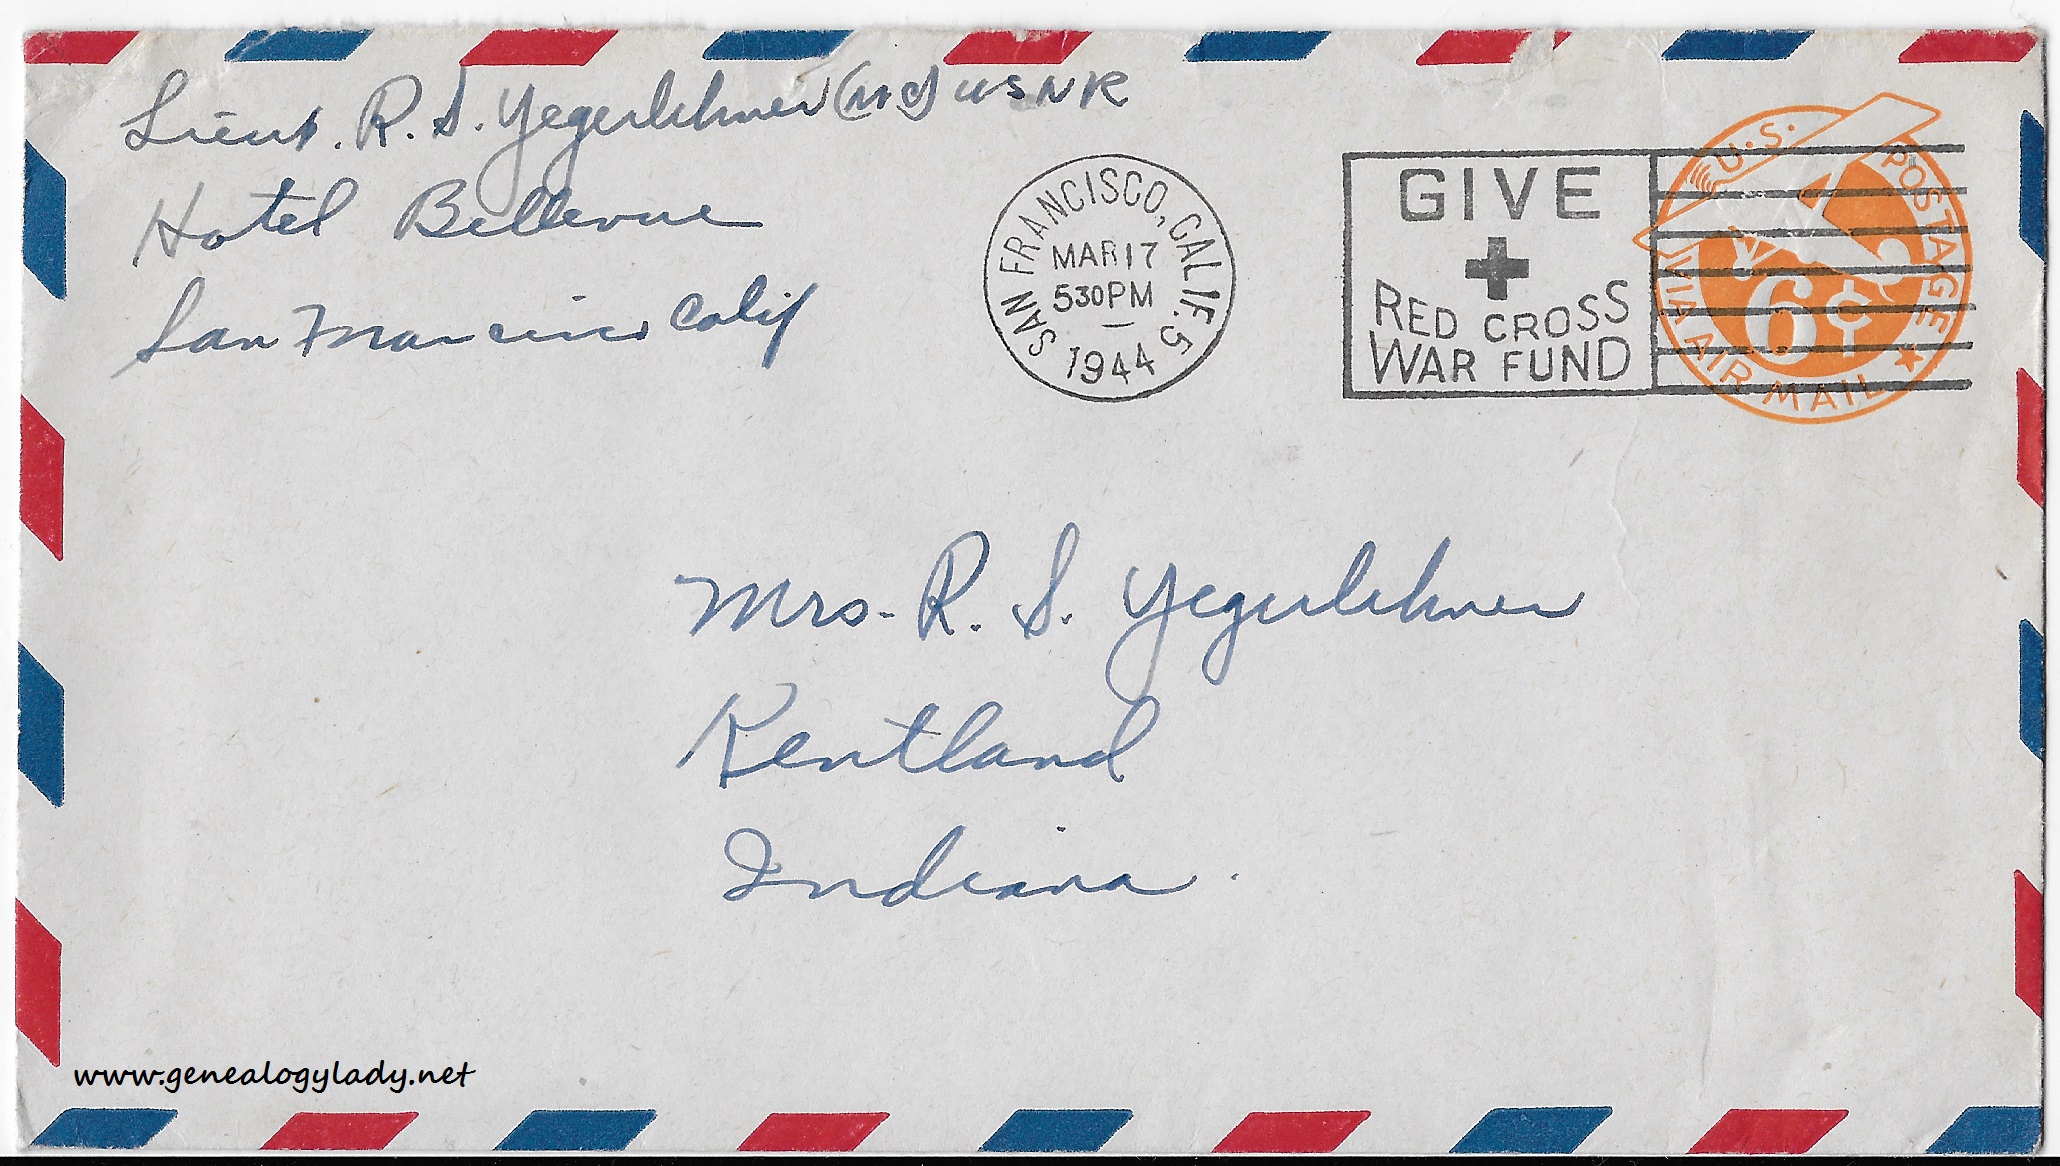 Lieut. R. S. Yegerlehner (MC) USNR
Hotel Bellevue
San Francisco Calif
SAN FRANCISCO, CALIF. 5
MAR 17
530 PM
1944
GIVE
RED CROSS
WAR FUND
U.S. POSTAGE
6¢
VIA AIR MAIL
Mrs. R. S. Yegerlehner
Kentland
Indiana.
www.genealogylady.net